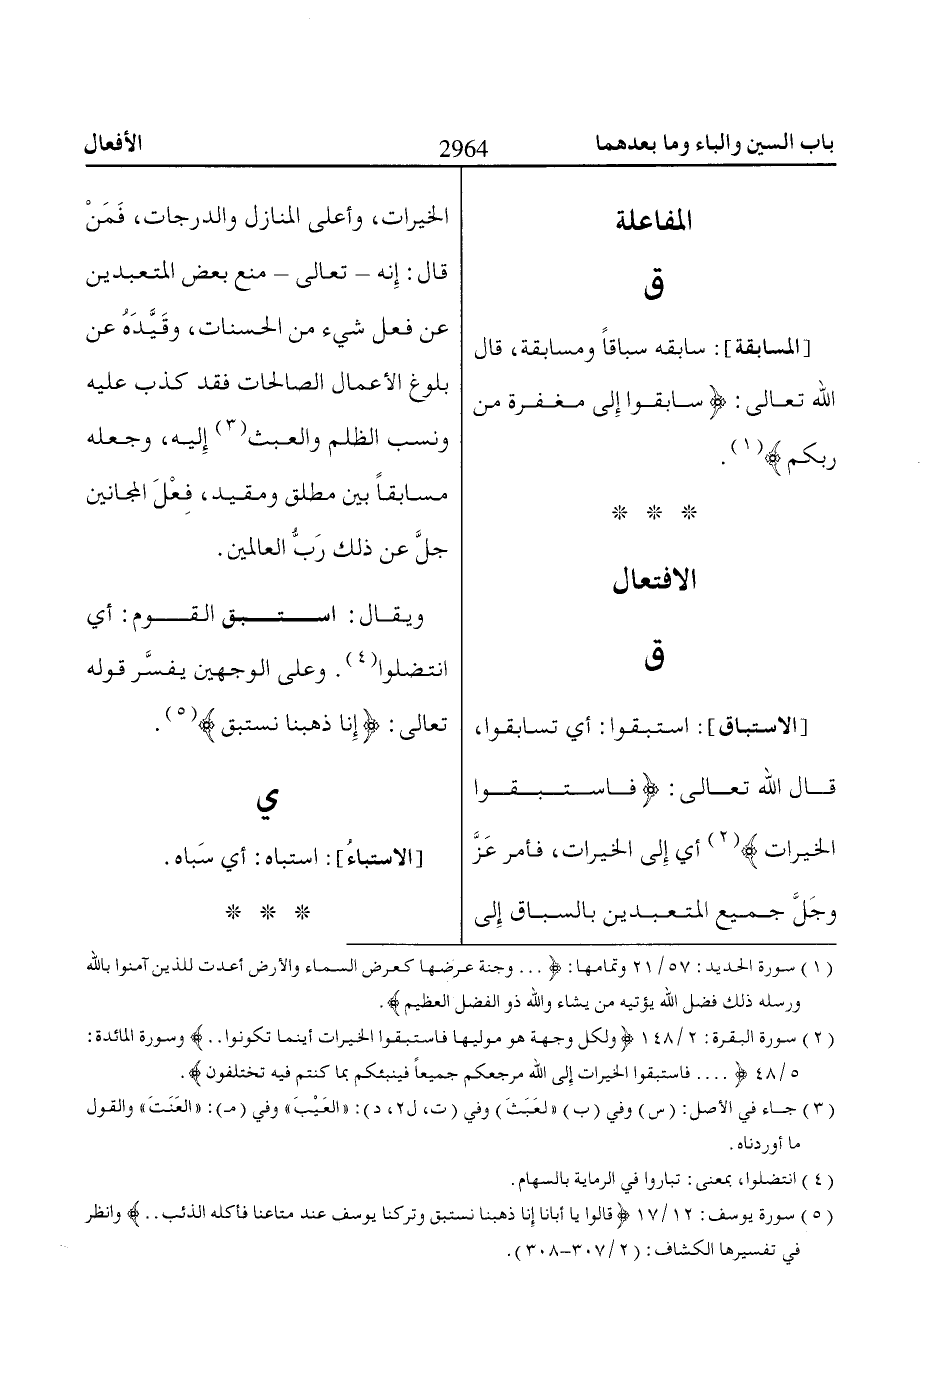 باب السين والباء وما بعدهما
2964
الأفعال
المفاعلة
ق
[المسابقة]: سابقه سباقاً ومسابقة، قال
الله تعالى: ﴿سابقوا إلى مغفرة من
ربكم﴾(١).
* * *
الافتعال
ق
[الاستباق]: استبقوا: أي تسابقوا،
قال الله تعالى: ﴿فاستبقوا
الخيرات﴾(٢) أي إلى الخيرات، فأمر عَزَّ
وجَلَّ جميع المتعبدين بالسباق إلى
الخيرات، وأعلى المنازل والدرجات، فَمَنْ
قال: إنه – تعالى – منع بعض المتعبدين
عن فعل شيء من الحسنات، وقَيَّدَهُ عن
بلوغ الأعمال الصالحات فقد كذب عليه
ونسب الظلم والعبث(٣) إليه، وجعله
مسابقاً بين مطلق ومقيد، فِعْلَ المجانين
جلَّ عن ذلك رَبُّ العالمين.
ويقال: استبق القوم: أي
انتضلوا(٤). وعلى الوجهين يفسَّر قوله
تعالى: ﴿إنا ذهبنا نستبق﴾(٥).
ي
[الاستباءُ]: استباه: أي سَباه.
* * *
(١) سورة الحديد: ٥٧/ ٢١ وتمامها: ﴿... وجنة عرضها كعرض السماء والأرض أعدت للذين آمنوا بالله
ورسله ذلك فضل الله يؤتيه من يشاء والله ذو الفضل العظيم﴾.
(٢) سورة البقرة: ٢/ ١٤٨ ﴿ولكل وجهة هو موليها فاستبقوا الخيرات أينما تكونوا..﴾ وسورة المائدة:
٥/ ٤٨ ﴿.... فاستبقوا الخيرات إلى الله مرجعكم جميعاً فينبئكم بما كنتم فيه تختلفون﴾.
(٣) جاء في الأصل: (س) وفي (ب) «لعَبَثَ) وفي (ت، ل٢، د): «العَيْبَ» وفي (مـ): «العَنَتَ» والقول
ما أوردناه.
(٤) انتضلوا، بمعنى: تباروا في الرماية بالسهام.
(٥) سورة يوسف: ١٢/ ١٧ ﴿قالوا يا أبانا إنا ذهبنا نستبق وتركنا يوسف عند متاعنا فأكله الذئب..﴾ وانظر
في تفسيرها الكشاف: (٢/ ٣٠٧–٣٠٨).